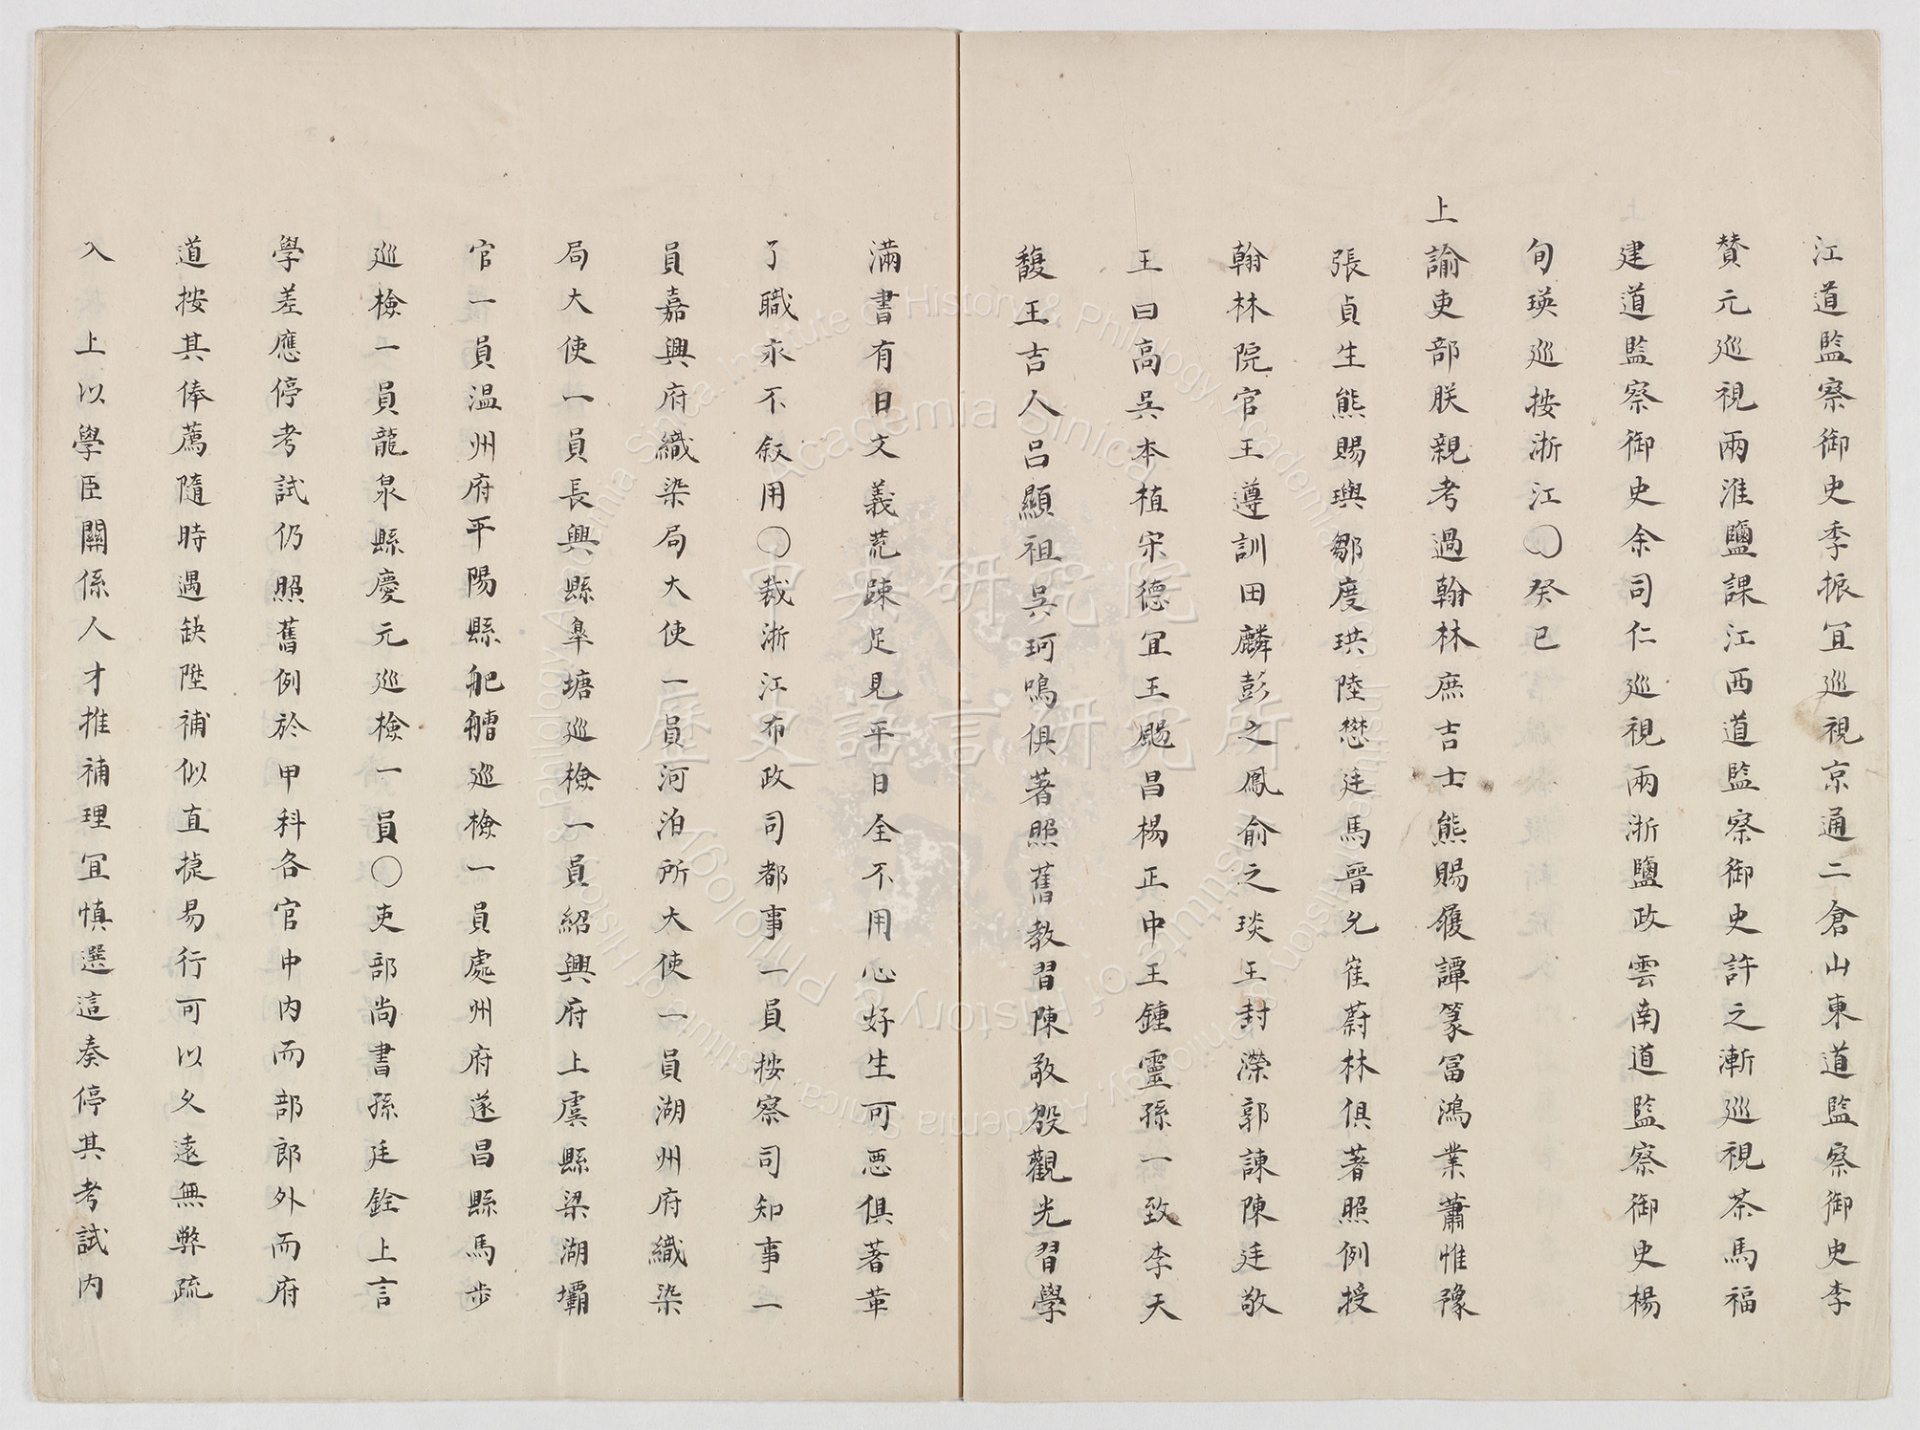 江道監察御史季振宜巡視京通二倉山東道監察御史李
贊元巡視兩淮鹽課江西道監察御史許之漸巡視茶馬福
建道監察御史余司仁巡視兩浙鹽政雲南道監察御史楊
旬瑛巡按浙江○癸巳
上諭吏部朕親考過翰林庶吉士熊賜履譚篆冨鴻業蕭惟豫
張貞生熊賜璵鄒度珙陸懋廷馬晉允崔蔚林俱著照例授
翰林院官王遵訓田麟彭之鳳俞之琰王封濚郭諫陳廷敬
王曰高吳本植宋德宜王颺昌楊正中王鍾靈孫一致李天
馥王吉人呂顯祖吳珂鳴俱著照舊教習陳敬殷觀光習學
滿書有日文義荒踈足見平日全不用心好生可惡俱著革
了職永不叙用○裁浙江布政司都事一員按察司知事一
員嘉興府織染局大使一員河泊所大使一員湖州府織染
局大使一員長興縣臯塘巡檢一員紹興府上虞縣梁湖壩
官一員温州府平陽縣舥艚巡檢一員處州府遂昌縣馬步
巡檢一員龍泉縣慶元巡檢一員○吏部尚書孫廷銓上言
學差應停考試仍照舊例於甲科各官中内而部郎外而府
道按其俸薦隨時遇缺陞補似直捷易行可以久遠無弊疏
入 上以學臣關係人才推補理冝慎選這奏停其考試内
中央研究院
歷史語言研究所
Academia Sinica
Institute of History & Philology, Academia Sinica